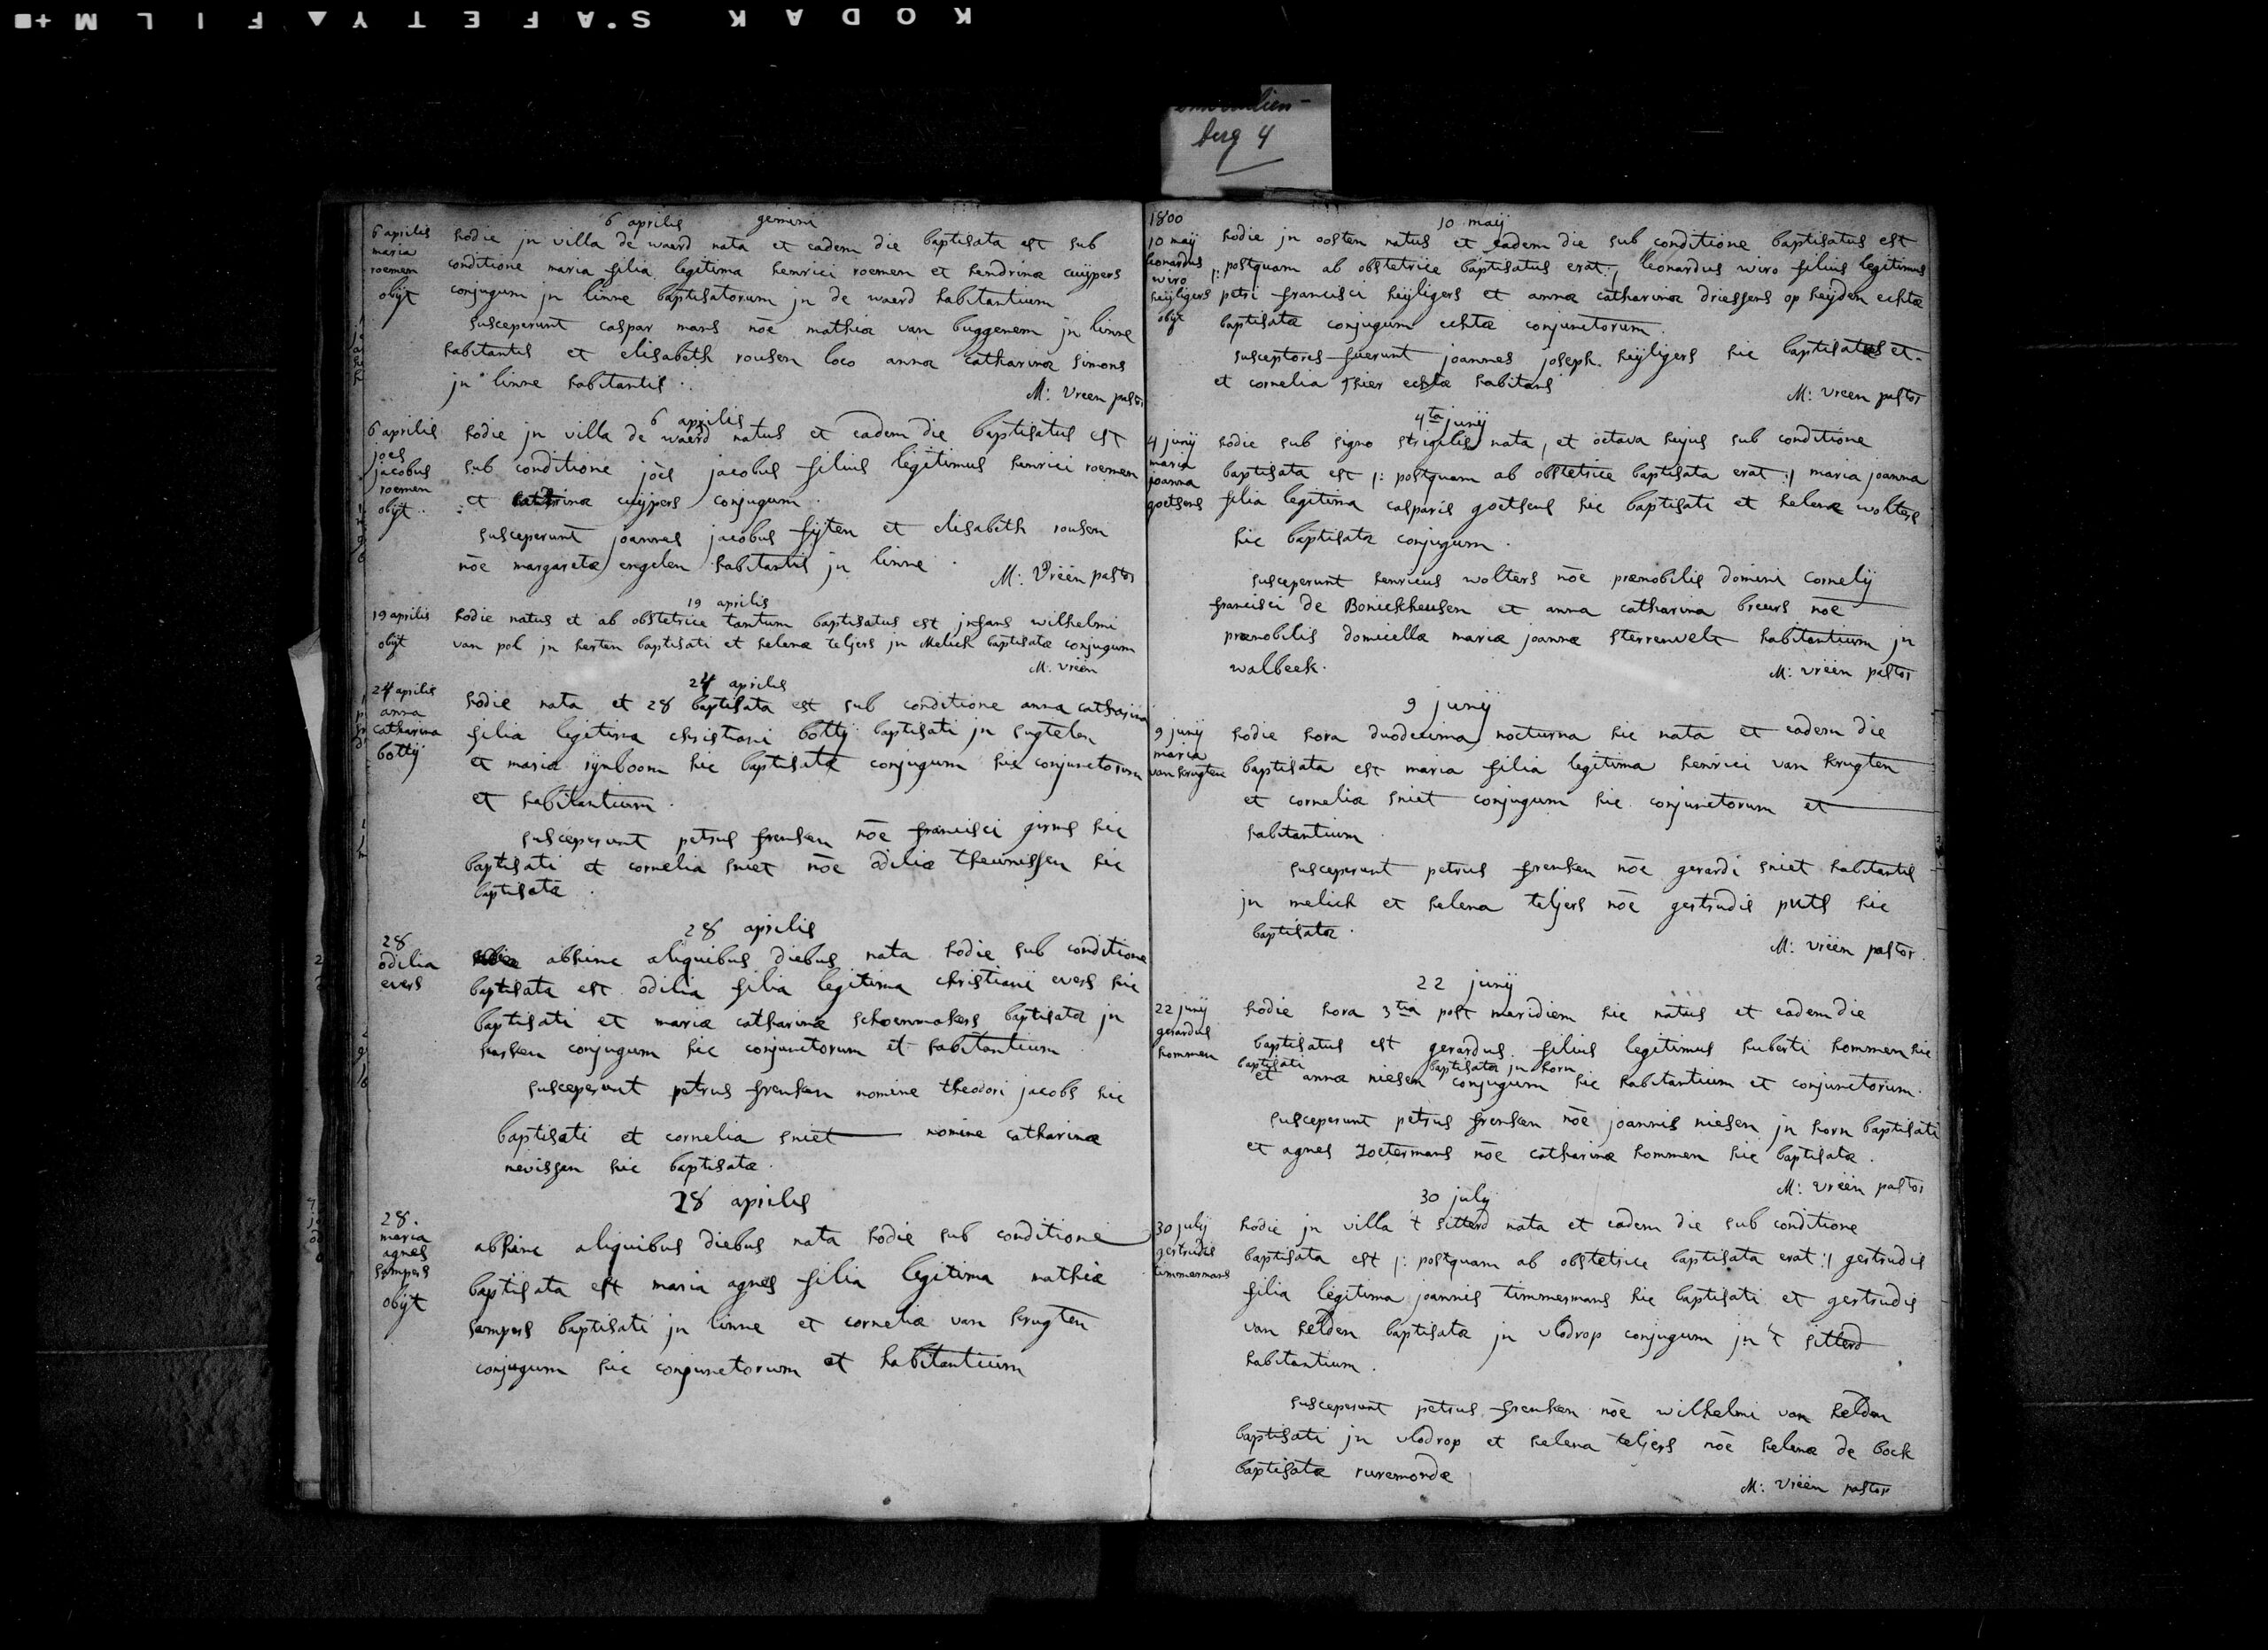 KODAK S.AFETY▲FILM
berg 4
6 aprilis gemini
6 aprilis
maria
roemen
obijt
hodie jn villa de waerd nata et eadem die baptisata est sub
conditione maria filia legitima henrici roemen et hendrinæ cuijpers
conjugum jn linne baptisatorum jn de waerd habitantium
susceperunt caspar mans nōe mathiæ van buggenem jn linne
habitantis et elisabeth rousen loco annæ catharinæ simons
jn linne habitantis.
M: Vreen pastor
6 aprilis
6 aprilis
joēs
jacobus
roemen
obijt
hodie jn villa de waerd natus et eadem die baptisatus est
sub conditione joēs jacobus filius legitimus henrici roemen
et cuijpers conjugum.
susceperunt joannes jacobus sijten et elisabeth rousen
nōe margaretæ engelen habitantis jn linne.
M: Vrëën pastor
19 aprilis
19 aprilis
obijt
hodie natus et ab obstetrice tantum baptisatus est jnfans wilhelmi
van pol jn herten baptisati et helenæ teljers jn Melick baptisatæ conjugum
M: vrëën
24 aprilis
24 aprilis
anna
catharina
botty
hodie nata et 28 baptisata est sub conditione anna catharina
filia legitima christiani botty baptisati jn sugtelen
et mariæ rijnboom hic baptisatæ conjugum hic conjunctorum
et habitantium.
susceperunt petrus frenken nōe francisci girms hic
baptisati et cornelia sniet nōe odiliæ theunissen hic
baptisatæ.
28 aprilis
28
odilia
evers
abhinc aliquibus diebus nata hodie sub conditione
baptisata est odilia filia legitima christiani evers hic
baptisati et mariæ catharinæ schoenmakers baptisatæ jn
conjugum hic conjunctorum et habitantium
susceperunt petrus frenken nomine theodori jacobs hic
baptisati et cornelia sniet nomine catharinæ
nevissen hic baptisatæ.
28 aprilis
28.
maria
agnes
sampers
obijt
abhinc aliquibus diebus nata hodie sub conditione
baptisata est maria agnes filia legitima mathiæ
sampers baptisati jn linne et corneliæ van krugten
conjugum hic conjunctorum et habitantium
1800
10 maij
10 maij
leonardus
wiro
heijligers
obijt
hodie jn oosten natus et eadem die sub conditione baptisatus est
/: postquam ab obstetrice baptisatus erat :/ leonardus wiro filius legitimus
petri francisci heijligers et annæ catharinæ driessens op heijden echtæ
baptisatæ conjugum echtæ conjunctorum.
susceptores fuerunt joannes joseph heijligers hic baptisatus et
et cornelia thier echtæ habitans
M: vreen pastor
4ta junij
4 junij
maria
joanna
goetsens
hodie sub signo strigilis nata, et octava hujus sub conditione
baptisata est /: postquam ab obstetrice baptisata erat :/ maria joanna
filia legitima casparis goetsens hic baptisati et helenæ wolters
hic baptisatæ conjugum.
susceperunt henricus wolters nōe prænobilis domini Cornelij
francisci de Bonickhausen et anna catharina breurs nōe
prænobilis domicellæ mariæ joannæ sterrenvelt habitantium jn
walbeek.
M: vrëën pastor
9 junij
9 junij
maria
van krugten
hodie hora duodecima nocturna hic nata et eadem die
baptisata est maria filia legitima henrici van krugten
et corneliæ sniet conjugum hic conjunctorum et
habitantium.
susceperunt petrus frenken nōe gerardi sniet habitantis
jn melick et helena teljers nōe gertrudis puts hic
baptisatæ.
M: vrëën pastor.
22 junij
22 junij
gerardus
hommen
hodie hora 3tia post meridiem hic natus et eadem die
baptisatus est gerardus filius legitimus huberti hommen hic
baptisati baptisatæ jn horn
et annæ niesen conjugum hic habitantium et conjunctorum.
susceperunt petrus frenken nōe joannis niesen jn horn baptisati
et agnes Zoetermans nōe catharinæ hommen hic baptisatæ.
M: vrëën pastor
30 july
30 july
gertrudis
timmermans
hodie jn villa 't sitterd nata et eadem die sub conditione
baptisata est /: postquam ab obstetrice baptisata erat :/ gertrudis
filia legitima joannis timmermans hic baptisati et gertrudis
van helden baptisatæ jn vlodrop conjugum jn 't sitterd
habitantium.
susceperunt petrus frenken nōe wilhelmi van helden
baptisati jn vlodrop et helena teljers nōe helenæ de bock
baptisatæ ruremondæ
M: vrëën pastor